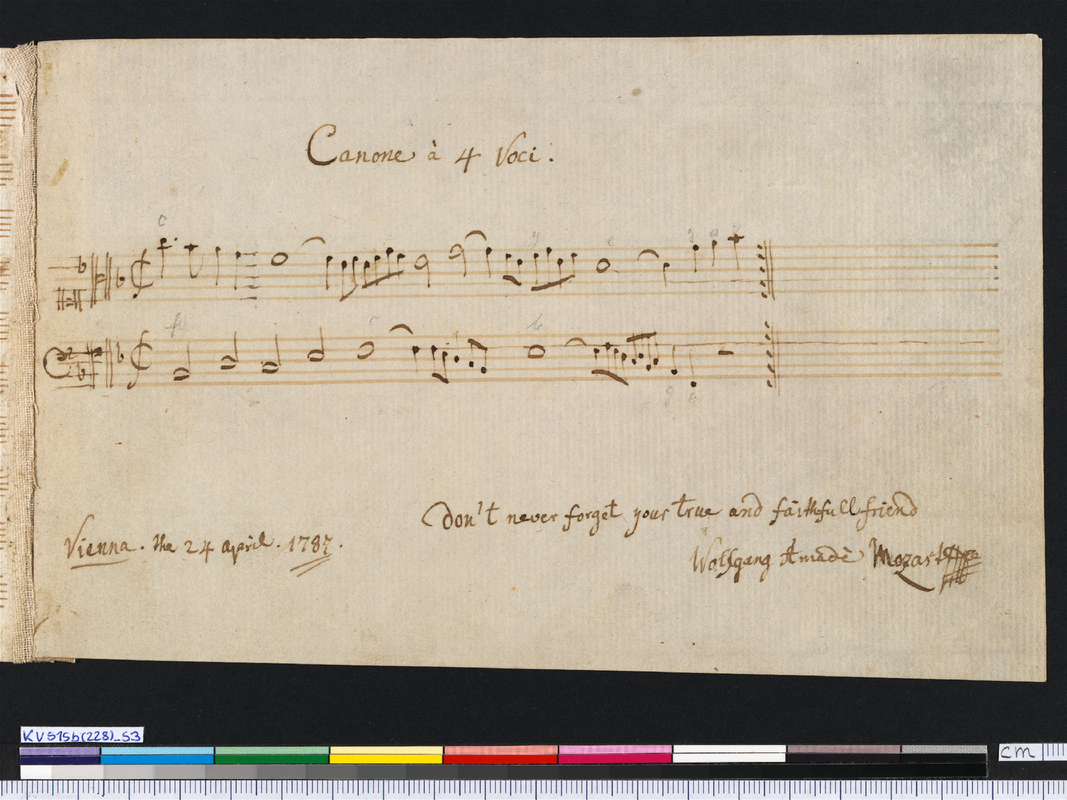 Canone à 4 Voci.
Don't never forget your true and faithfull friend
Vienna. the 24 april. 1787.
Wolfgang Amadè Mozart
KV515b(228)_S3
cm